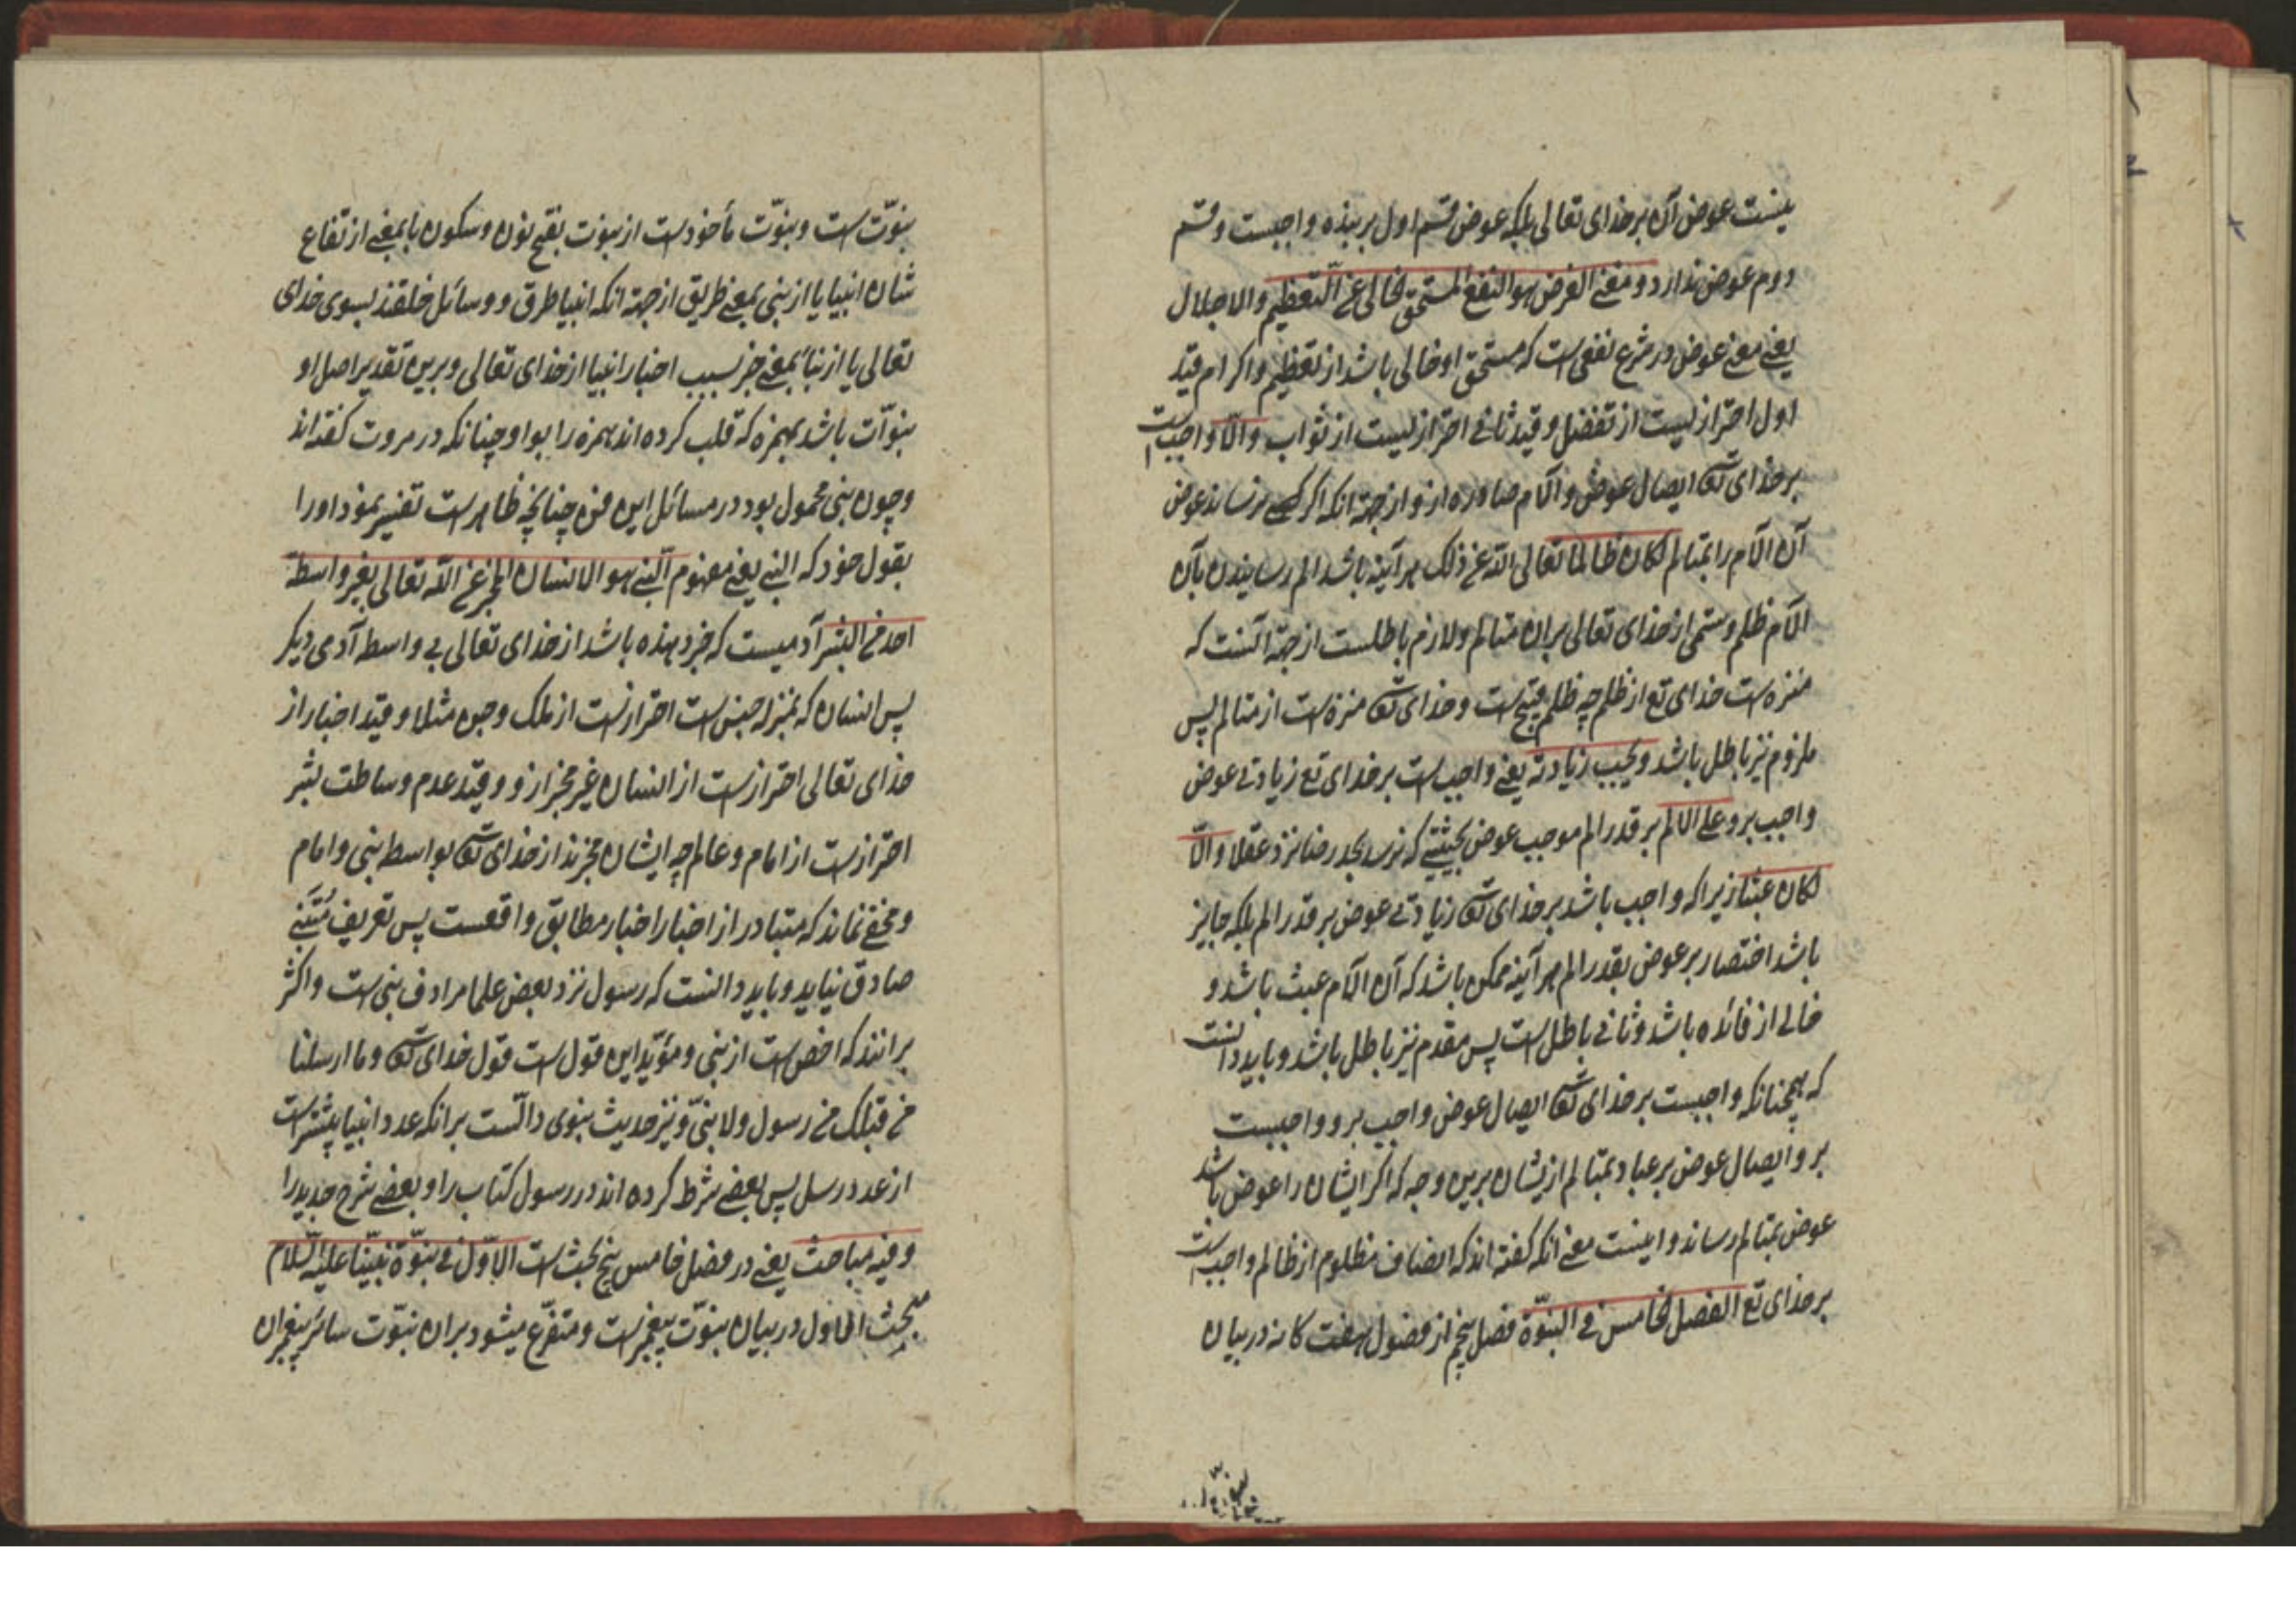 نیست عوض آن بر خدای تعالی بلکه عوض قسم اول بر بنده واجبست و قسم
دوم عوض ندارد و معنی العوض هو النفع المستحق الخالی عن التعظیم والاجلال
یعنی معنی عوض در شرع نفعی است که مستحق او خالی باشد از تعظیم و اکرام قید
اول احترازیست از تفضل و قید ثانی احترازیست از ثواب والّا واجب است
بر خدای تع ایصال عوض و آلام صادره ازو از جهة انکه اگر کسی نرساند عوض
آن آلام را بمتالم لکان ظالما تعالی الله عن ذلک هر آینه باشد الم رسانیدن بآن
آلام ظلم و ستمی از خدای تعالی بران متالم ولازم باطلست از جهة آنست که
منزه است خدای تع از ظلم چه ظلم قبیح است و خدای تع منزه است از متالم پس
ملزوم نیز باطل باشد ویجب زیادته یعنی واجب است بر خدای تع زیادتی عوض
واجب برو علی الالم بر قدر الم موجب عوض بحیثیتی که برسد بحد رضا نزد عقلا والّا
لکان عبثا زیرا که واجب باشد بر خدای تع زیادتی عوض بر قدر الم بلکه جایز
باشد اختصار بر عوض بقدر الم هر آینه ممکن باشد که آن آلام عبث باشد و
خالی از فائده باشد و ثانی باطل است پس مقدم نیز باطل باشد و باید دانست
که همچنانکه واجبست بر خدای تع ایصال عوض واجب برو واجبست
برو ایصال عوض بر عباد بمتالم ازیشان برین وجه که اکر ایشان را عوض باشد
عوض بمتالم رساند و اینست معنی انکه کفته اند که انصاف مظلوم از ظالم واجب است
بر خدای تع الفصل الخامس فی النبوّة فصل پنجم از فصول هفت کانه در بیان
نبوّت است و نبوّت مأخود است از نبوت بفتح نون و سکون با بمعنی ارتفاع
شان انبیا یا از نبی بمعنی طریق از جهة انکه انبیا طرق و وسائل خلقند بسوی خدای
تعالی یا از نبأ بمعنی خبر بسبب اخبار انبیا از خدای تعالی و برین تقدیر اصل او
نبوأت باشد بهمزه که قلب کرده اند همزه را بواو چنانکه در مروت کفته اند
و چون نبی محمول بود در مسائل این فن چنانچه ظاهر است تفسیر نمود او را
بقول خود که النبی یعنی مفهوم النبی هو الانسان المخبر عن الله تعالی بغیر واسطة
احد من البشر آدمیست که خبر دهنده باشد از خدای تعالی بی واسطه آدمی دیکر
پس انسان که بمنزله جنس است احترازست از ملک و جن مثلا و قید اخبار از
خدای تعالی احترازست از انسان غیر مخبر ازو و قید عدم وساطت بشر
احترازست از امام و عالم چه ایشان مخبرند از خدای تع بواسطه نبی و امام
و مخفی نماند که متبادر از اخبار اخبار مطابق واقعست پس تعریف بر متنبی
صادق نیاید و باید دانست که رسول نزد بعض علما مرادف نبی است و اکثر
برانند که اخص است از نبی و مؤید این قول است قول خدای تع وما ارسلنا
من قبلک من رسول ولا نبیّ و نیز حدیث نبوی دالّست برانکه عدد انبیا بیشتر است
از عدد رسل پس بعضی شرط کرده اند در رسول کتاب را و بعضی شرع جدید را
وفیه مباحث یعنی در فصل خامس پنج بحث است الاوّل فی نبوّة نبیّنا علیه السلام
مبحث الاول در بیان نبوّت پیغمبر است و متفرّع میشود بران نبوّت سائر پیغمبران